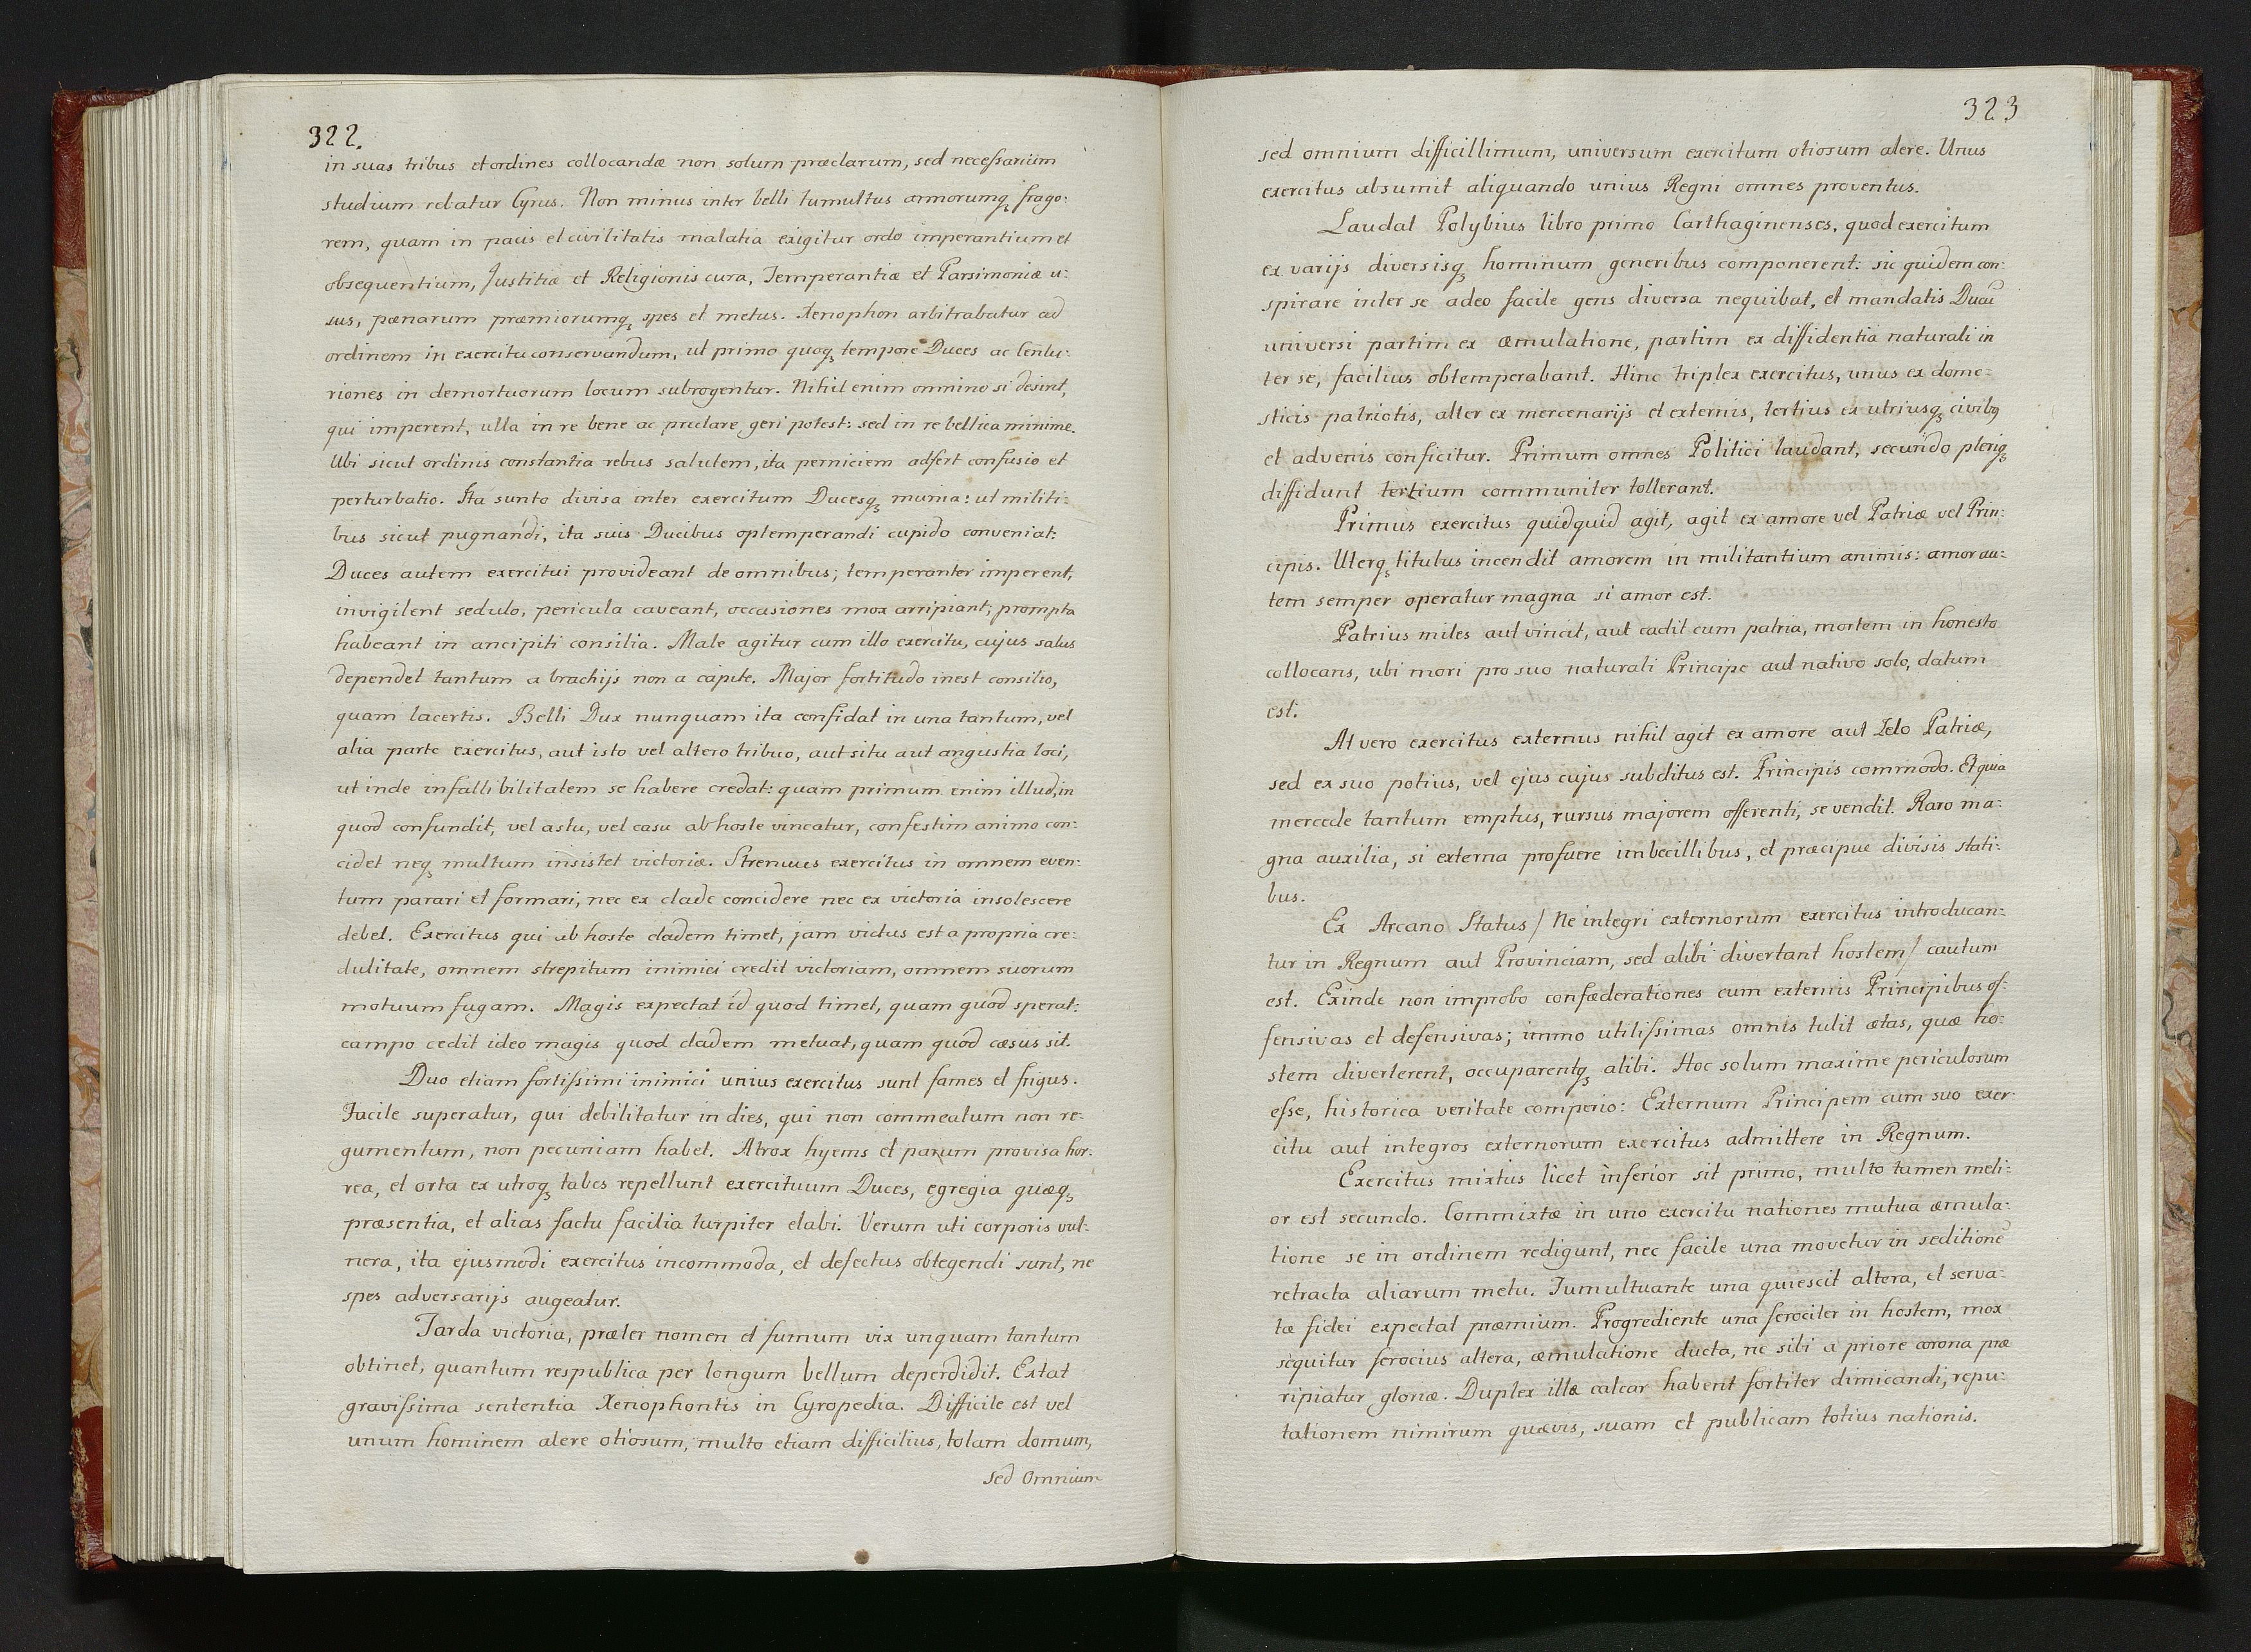 322.
in suas tribus et ordines collocandæ non solum præclarum, sed necessarium
studium rebatur Cyrus. Non minus inter belli tumultus armorumq₃ frago:
rem, quam in pacis et civilitatis malatia exigitur ordo imperantium et
obsequentium, Justitiæ et Religionis cura, Temperantiæ et Parsimoniæ u:
sus, pænarum præmiorumq₃ spes et metus. Xenophon arbitrabatur ad
ordinem in exercitu conservandum, ut primo quoq₃ tempore Duces ac Centu:
riones in demortuorum locum subrogentur. Nihil enim omnino si desint,
qui imperent, ulla in re bene ac preclare geri potest: sed in re bellica minime.
Ubi sicut ordinis constantia rebus salutem, ita perniciem adfert confusio et
perturbatio. Ita sunto divisa inter exercitum Ducesq₃ munia: ut militi:
bus sicut pugnandi, ita suis Ducibus optemperandi cupido conveniat:
Duces autem exercitui provideant de omnibus; temperanter imperent,
invigilent sedulo, pericula caveant, occasiones mox arripiant; prompta
habeant in ancipiti consilia. Male agitur cum illo exercitu, cujus salus
dependet tantum a brachijs non a capite. Major fortitudo inest consilio,
quam lacertis. Belli Dux nunquam ita confidat in una tantum, vel
alia parte exercitus, aut isto vel altero tribuo, aut situ aut angustia loci,
ut inde infallibilitatem se habere credat: quam primum enim illud, in
quod confundit, vel astu, vel casu ab hoste vincatur, confestim animo con:
cidet neq₃ multum insistet victoriæ. Strenuus exercitus in omnem even:
tum parari et formari, nec ex clade concidere nec ex victoria insolescere
debet. Exercitus qui ab hoste cladem timet, jam victus est a propria cre:
dulitate, omnem strepitum inimici credit victoriam, omnem suorum
motuum fugam. Magis expectat id quod timet, quam quod sperat:
campo cedit ideo magis quod cladem metuat, quam quod cæsus sit.
Duo etiam fortissimi inimici unius exercitus sunt fames et frigus.
Facile superatur, qui debilitatur in dies, qui non commeatum non re:
gumentum, non pecuniam habet. Atrox hyems et parum provisa hor:
rea, et orta ex utroq₃ tabes repellunt exercituum Duces, egregia quæq₃
præsentia, et alias factu facilia turpiter elabi. Verum uti corporis vul:
nera, ita ejusmodi exercitus incommoda, et defectus obtegendi sunt, ne
spes adversarijs augeatur.
Tarda victoria, præter nomen et fumum vix unquam tantum
obtinet, quantum respublica per longum bellum deperdidit. Extat
gravissima sententia Xenophontis in Cyropedia. Difficile est vel
unum hominem alere otiosum, multo etiam difficilius, totam domum,
sed omnium
323
sed omnium difficillimum, universum exercitum otiosum alere. Unus
exercitus absumit aliquando unius Regni omnes proventus.
Laudat Polybius libro primo Carthaginenses, quod exercitum
ex varijs diversisq₃ hominum generibus componerent: sic quidem con:
spirare inter se adeo facile gens diversa nequibat, et mandatis Ducū
universi partim ex æmulatione, partim ex diffidentia naturali in
ter se, facilius obtemperabant. Hinc triplex exercitus, unus ex dome:
sticis patriotis, alter ex mercenarijs et externis, tertius ex utriusq₃ civibꝰ
et advenis conficitur. Primum omnes Politici laudant, secundo pleriq₃
diffidunt tertium communiter tollerant.
Primus exercitus quidquid agit, agit ex amore vel Patriæ vel Prin:
cipis. Uterq₃ titulus incendit amorem in militantium animis: amor au:
tem semper operatur magna si amor est.
Patrius miles aut vincit, aut cadit cum patria, mortem in honesto
collocans, ubi mori pro suo naturali Principe aut nativo solo, datum
est.
At vero exercitus externus nihil agit ex amore aut Zelo Patriæ,
sed ex suo potius, vel ejus cujus subditus est. Principis commodo. Et quia
mercede tantum emptus, rursus majorem offerenti, se vendit. Raro ma:
gna auxilia, si externa profuere imbecillibus, et præcipue divisis stati:
bus.
Ex Arcano Status / Ne integri externorum exercitus introducan:
tur in Regnum aut Provinciam, sed alibi divertant hostem / cautum
est. Exinde non improbo confæderationes cum externis Principibus of:
fensivas et defensivas; immo utilissimas omnis tulit ætas, quæ ho:
stem diverterent, occuparentq₃ alibi. Hoc solum maxime periculosum
esse, historica veritate comperio: Externum Principem cum suo exer:
citu aut integros externorum exercitus admittere in Regnum.
Exercitus mixtus licet inferior sit primo, multo tamen meli:
or est secundo. Commixtæ in uno exercitu nationes mutua æmula:
tione se in ordinem redigunt, nec facile una movetur in seditionē
retracta aliarum metu. Tumultuante una quiescit altera, et serva:
tæ fidei expectat præmium. Progrediente una ferociter in hostem, mox
sequitur ferocius altera, æmulatione ducta, ne sibi a priore corona præ
ripiatur gloriæ. Duplex illæ calcar habent fortiter dimicandi, repu:
tationem nimirum quævis, suam et publicam totius nationis.